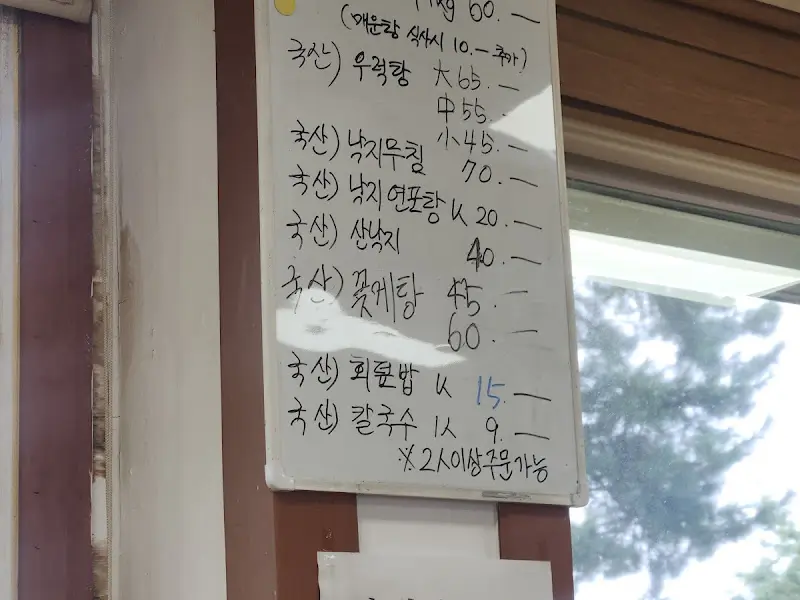 1kg 60.—
(매운탕 식사시 10.— 추가)
국산) 우럭탕 大 65.—
中 55.—
小 45.—
국산) 낙지무침 70.—
국산) 낙지연포탕 人 20.—
국산) 산낙지 40.—
국산) 꽃게탕 45.—
60.—
국산) 회덮밥 人 15.—
국산) 칼국수 1人 9.—
※2人이상주문가능